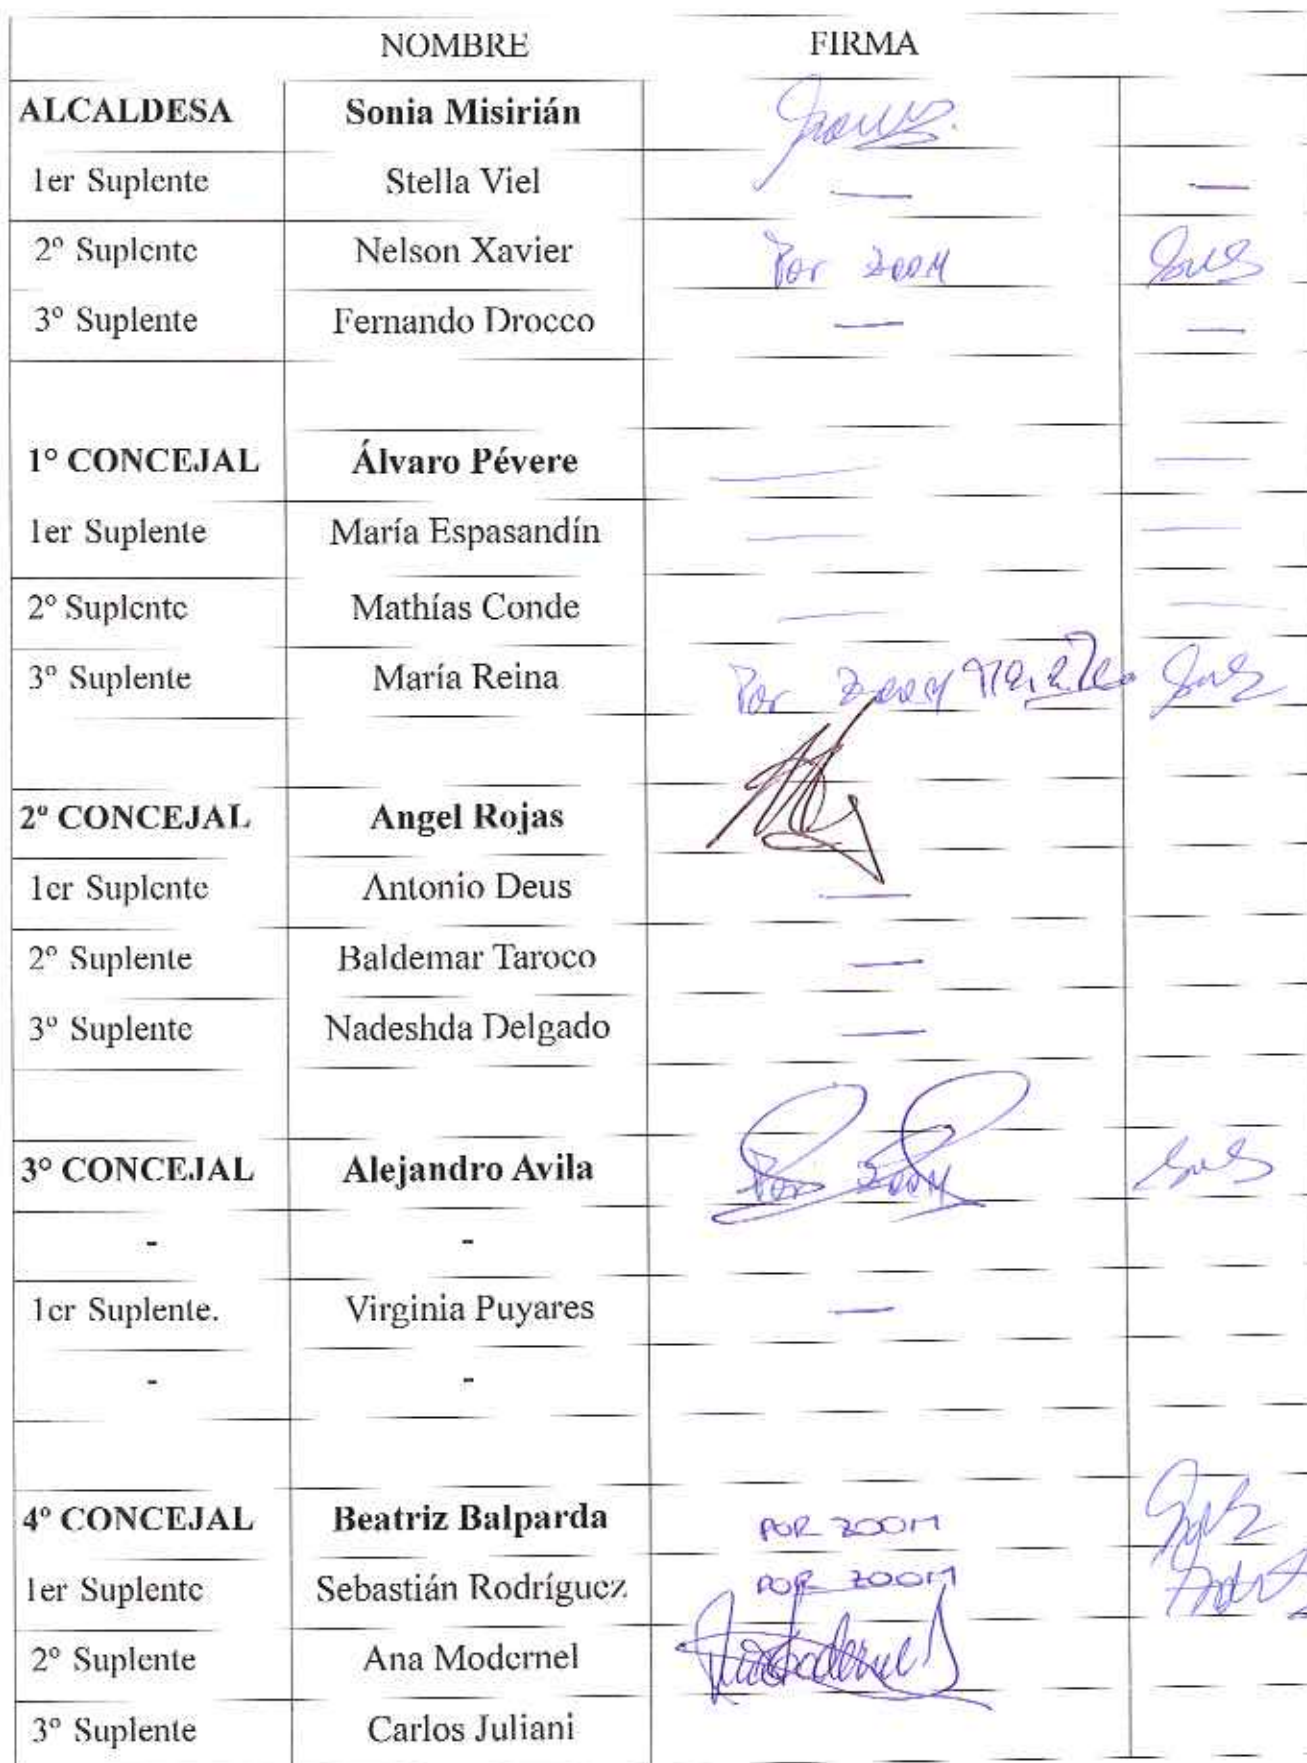 NOMBRE FIRMA
ALCALDESA Sonia Misirián
1er Suplente Stella Viel —  —
2º Suplente Nelson Xavier Por Zoom
3º Suplente Fernando Drocco —  —
1º CONCEJAL Álvaro Pévere —  —
1er Suplente María Espasandín —  —
2º Suplente Mathías Conde —  —
3º Suplente María Reina Por Zoom
2º CONCEJAL Angel Rojas
1er Suplente Antonio Deus —
2º Suplente Baldemar Taroco —
3º Suplente Nadeshda Delgado —
3º CONCEJAL Alejandro Avila Por Zoom
- -
1er Suplente. Virginia Puyares —
- -
4º CONCEJAL Beatriz Balparda POR ZOOM
1er Suplente Sebastián Rodríguez POR ZOOM
2º Suplente Ana Modernel
3º Suplente Carlos Juliani